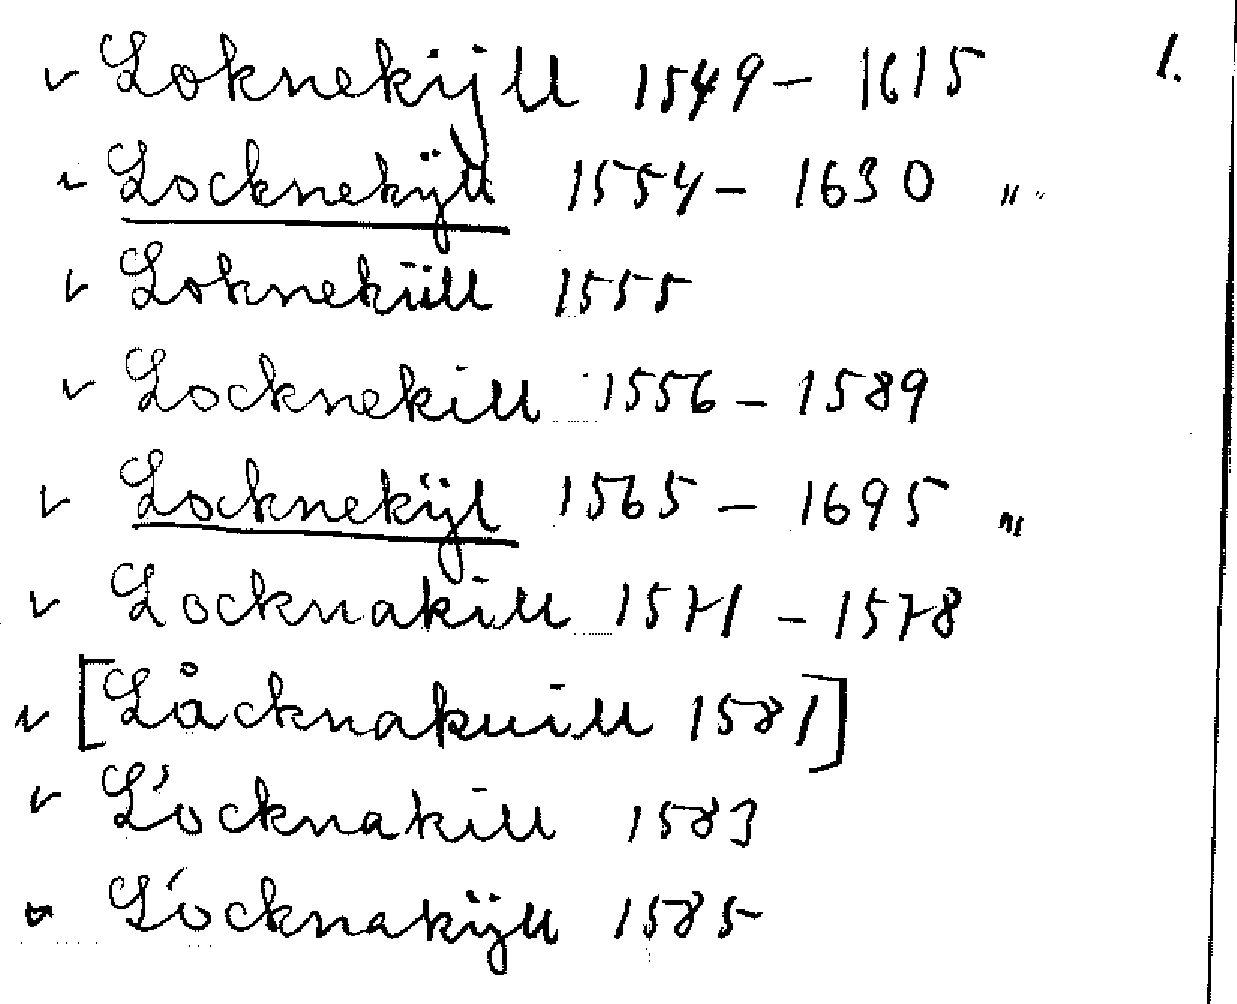 ✓ Loknekijll 1549 – 1615 1.
✓ Locknekÿll 1554 – 1630 "
✓ Lokneküll 1555
✓ Locknekill 1556 – 1589
✓ Locknekÿl 1565 – 1695
✓ Locknakill 1571 – 1578
✓ [Låcknakuill 1581]
✓ L'ocknakill 1583
L'ocknakÿll 1585